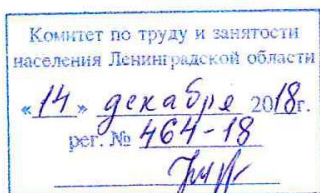 Комитет по труду и занятости
населения Ленинградской области
«14» декабря 2018г.
рег. № 464-18